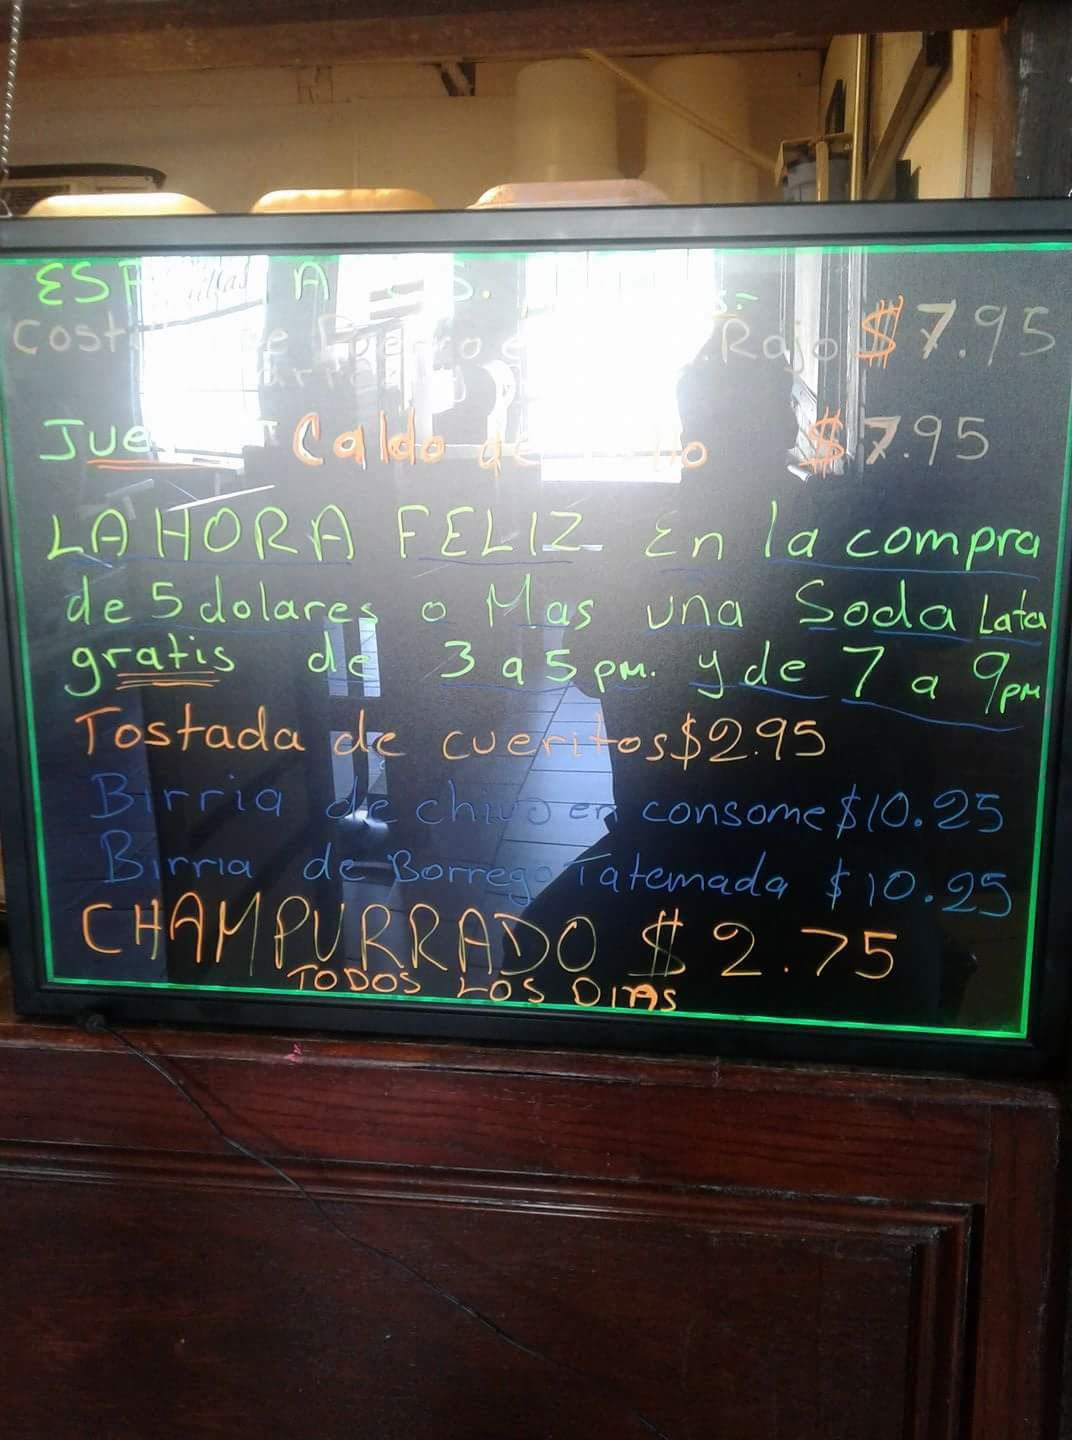 de Rajo $7.95
Caldo de $7.95
LA HORA FELIZ En la compra
de 5 dolares o Mas una Soda Lata
gratis de 3 a 5 pm. y de 7 a 9 pm
Tostada de cueritos $2.95
Birria de chivo en consome $10.25
Birria de Borrego Tatemada $10.25
CHAMPURRADO $2.75
TODOS LOS DIAS